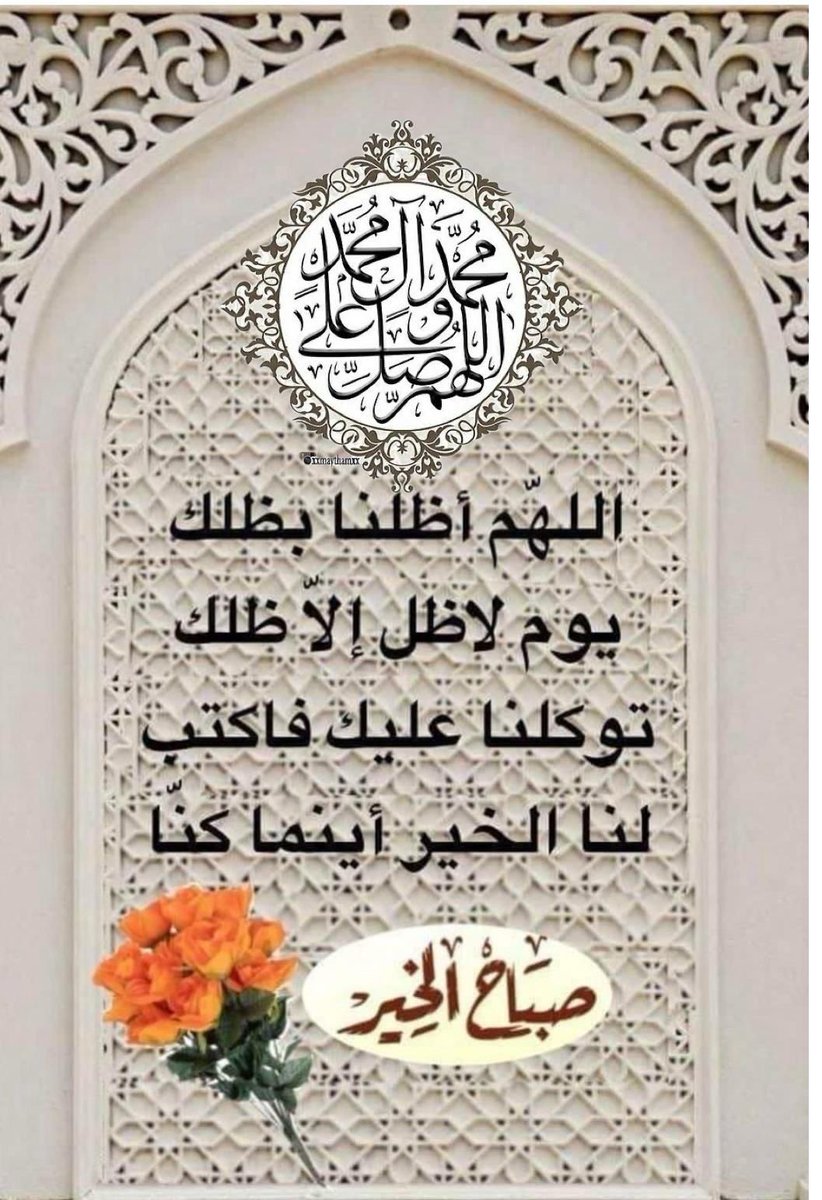 اللهم صل على محمد وآل محمد
xxmaythamxx
اللهّم أظلنا بظلك
يوم لاظل إلاّ ظلك
توكلنا عليك فاكتب
لنا الخير أينما كنّا
صباح الخير